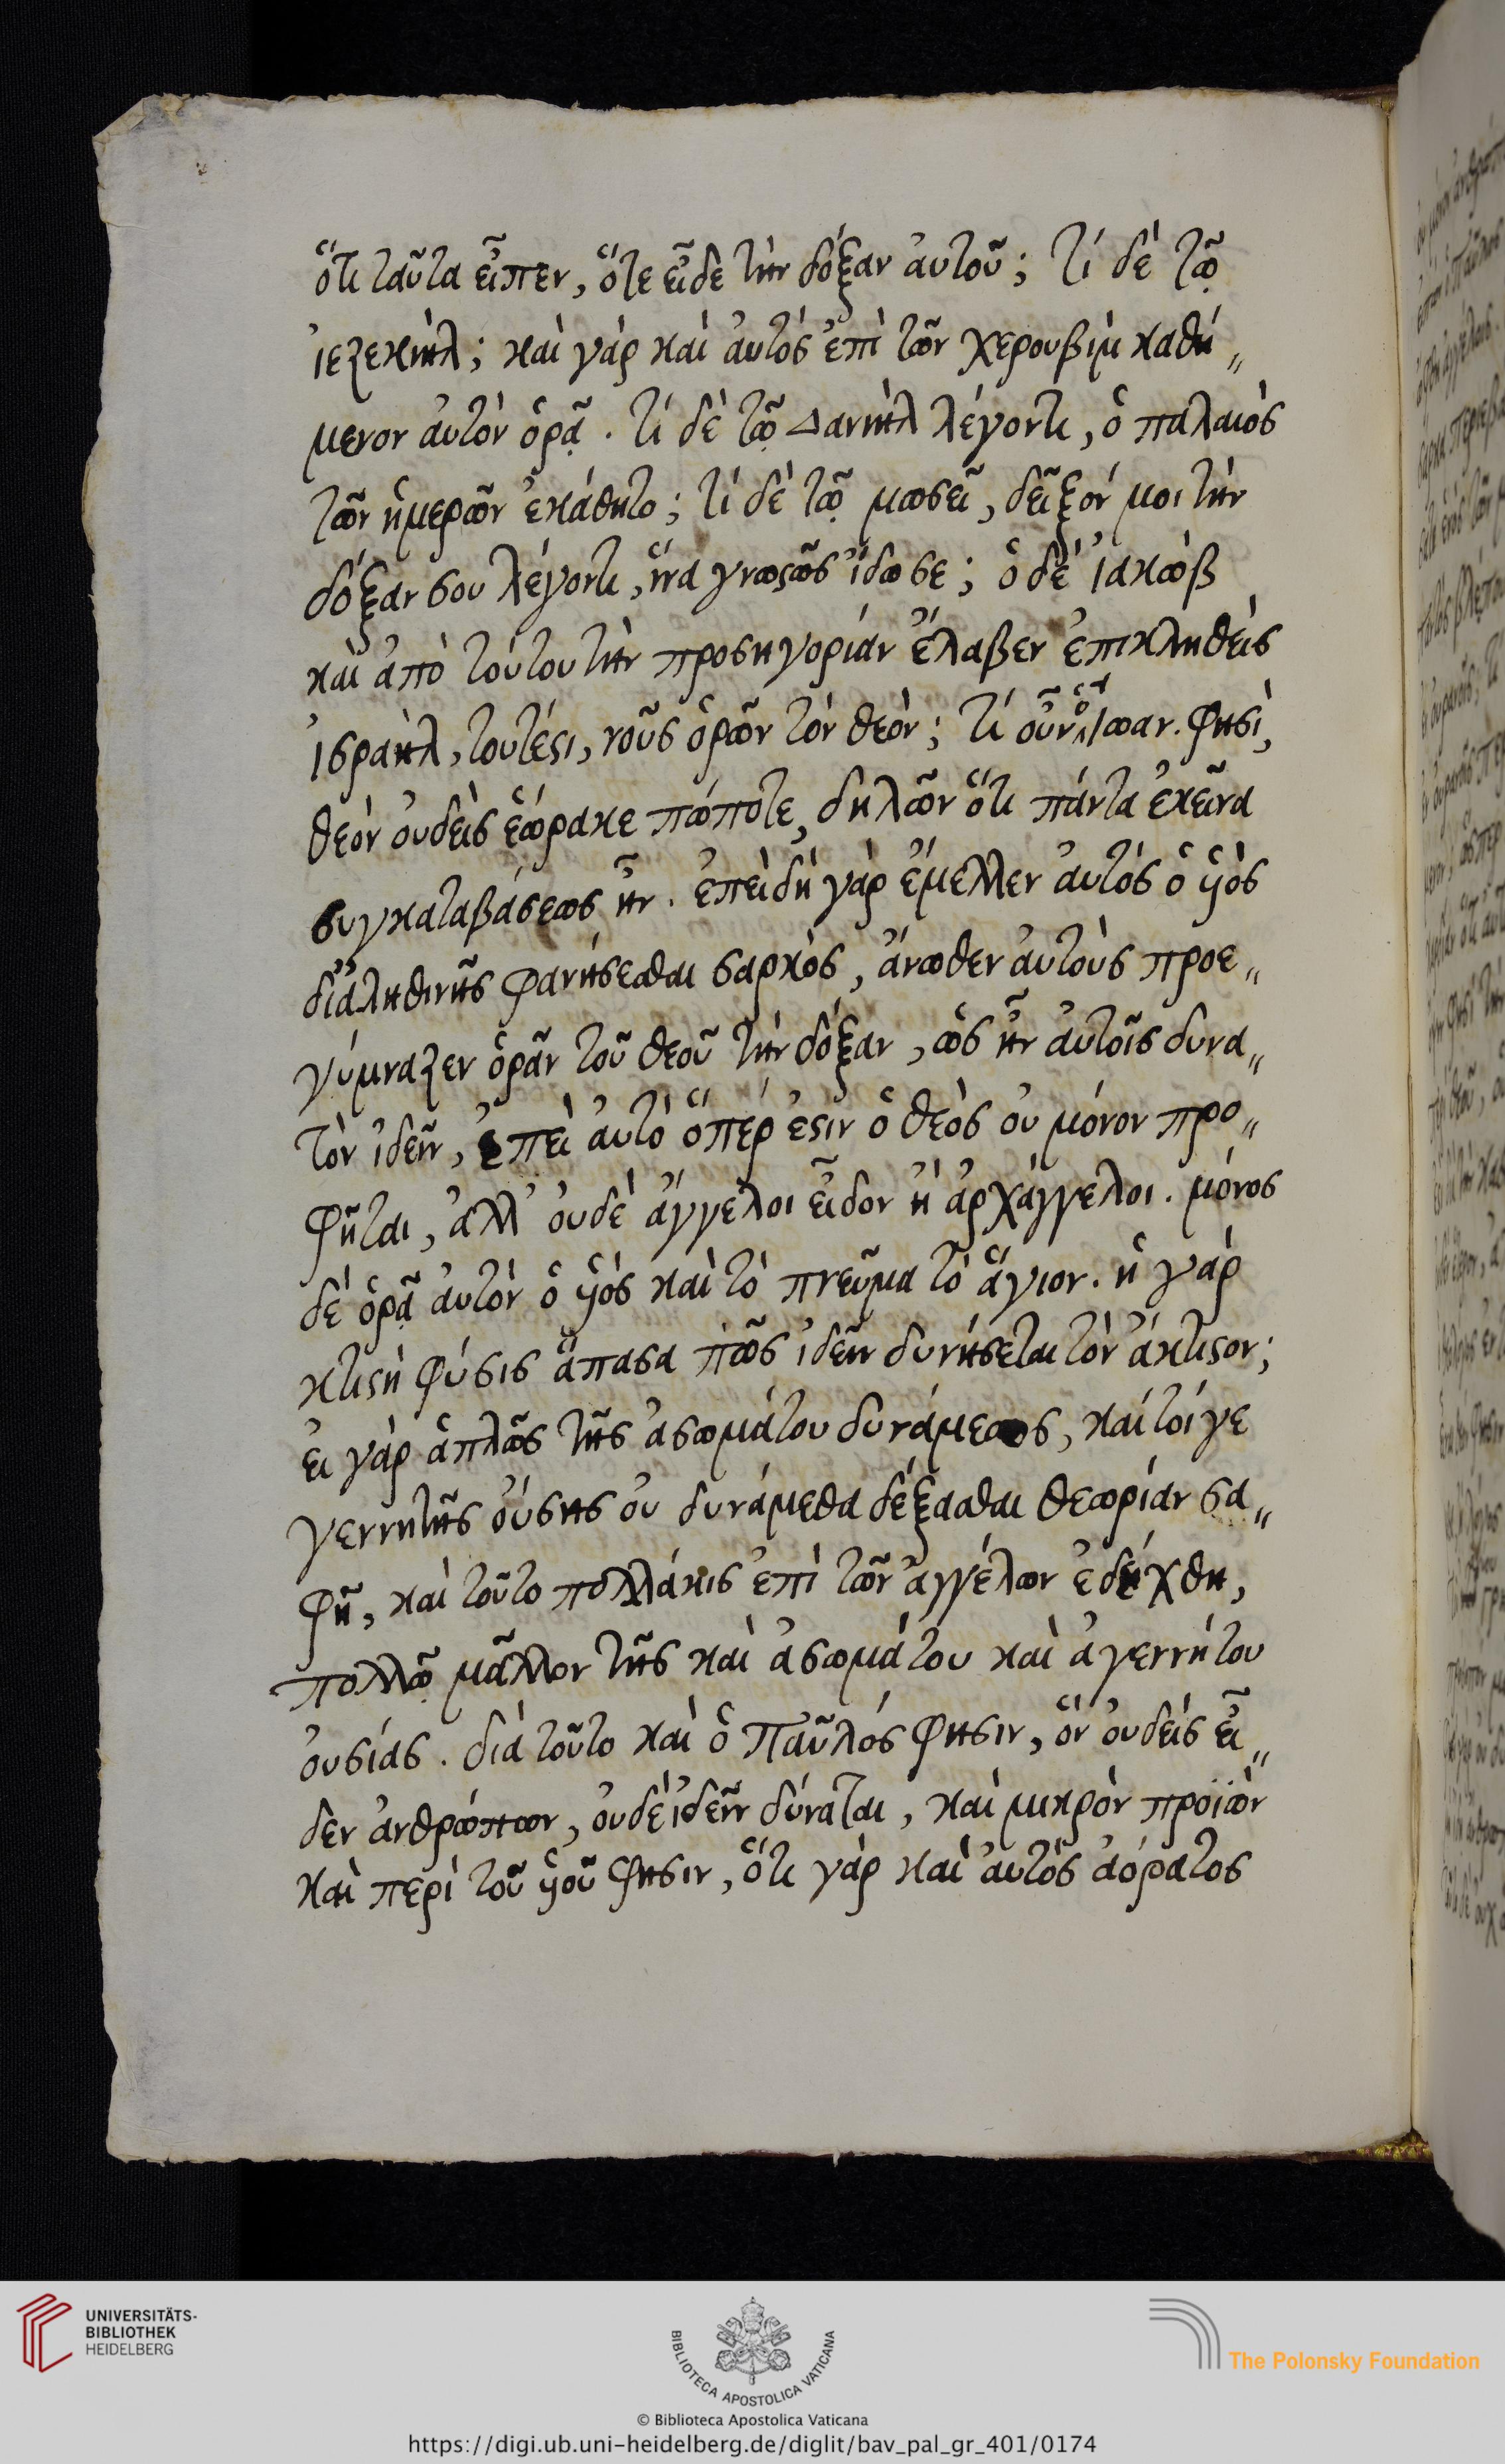 ὅτι ταῦτα εἶπεν, ὅτε εἶδε τὴν δόξαν ἀυτοῦ; τί δὲ τῷ
ἰεζεκιὴλ; καὶ γὰρ καὶ ἀυτός ἐπὶ τῶν χερουβὶμ καθή„
μενον ἀυτὸν ὁρᾷ. τί δὲ τῷ Δανιὴλ λέγοντι, ὁ παλαιὸς
τῶν ἡμερῶν ἐκάθητο; τί δὲ τῷ μωσεῖ, δεῖξόν μοι τὴν
δόξαν σου λέγοντι, ἵνα γνωϛῶς ἴδω σε; ὁ δὲ ἰακὼβ
καὶ ἀπὸ τούτου τὴν προσηγορίαν ἔλαβεν ἐπικληθεὶς
ἰσραὴλ, τουτέϛι, νοῦς ὁρῶν τὸν θεόν; τί οὖν ὁ ἰωαν. φησὶ,
θεὸν ὀυδεὶς ἑώρακε πώποτε, δηλῶν ὅτι πάντα ἐκεῖνα
συγκαταβάσεως ἦν. ἐπειδὴ γὰρ ἔμελλεν ἀυτὸς ὁ ὑιὸς
δι᾽ἀληθινῆς φανήσεσθαι σαρκὸς, ἄνωθεν ἀυτοὺς προε„
γύμναζεν ὁρᾶν τοῦ θεοῦ τὴν δόξαν, ὡς ἦν ἀυτοῖς δυνα„
τὸν ἰδεῖν, ἐπεὶ ἀυτὸ ὅπέρ ἐϛιν ὁ θεὸς ὀυ μόνον προ„
φῆται, ἀλλ᾽ ὀυδὲ ἄγγελοι εἶδον ἢ ἀρχάγγελοι. μόνος
δὲ ὁρᾷ ἀυτὸν ὁ ὑιὸς καὶ τὸ πνεῦμα τὸ ἅγιον. ἡ γὰρ
κτιϛὴ φύσις ἅπασα πῶς ἰδεῖν δυνήσεται τὸν ἄκτιϛον;
ἐι γὰρ ἁπλῶς τῆς ἀσωμάτου δυνάμεως, καίτοί γε
γεννητῆς ὄυσης ὀυ δυνάμεθα δέξασθαι θεωρίαν σα„
φῆ, καὶ τοῦτο πολλάκις ἐπὶ τῶν ἀγγέλων ἐδείχθη,
πολλῷ μᾶλλον τῆς καὶ ἀσωμάτου καὶ ἀγεννήτου
ὀυσίας. διὰ τοῦτο καὶ ὁ Παῦλός φησιν, ὃν ὀυδεὶς εἶ„
δεν ἀνθρώπων, ὀυδὲ ἰδεῖν δύναται, καὶ μικρὸν προϊὼν
καὶ περὶ τοῦ ὑιοῦ φησιν, ὅτι γὰρ καὶ ἀυτὸς ἀόρατος
UNIVERSITÄTS-
BIBLIOTHEK
HEIDELBERG
BIBLIOTECA APOSTOLICA VATICANA
The Polonsky Foundation
© Biblioteca Apostolica Vaticana
https://digi.ub.uni-heidelberg.de/diglit/bav_pal_gr_401/0174